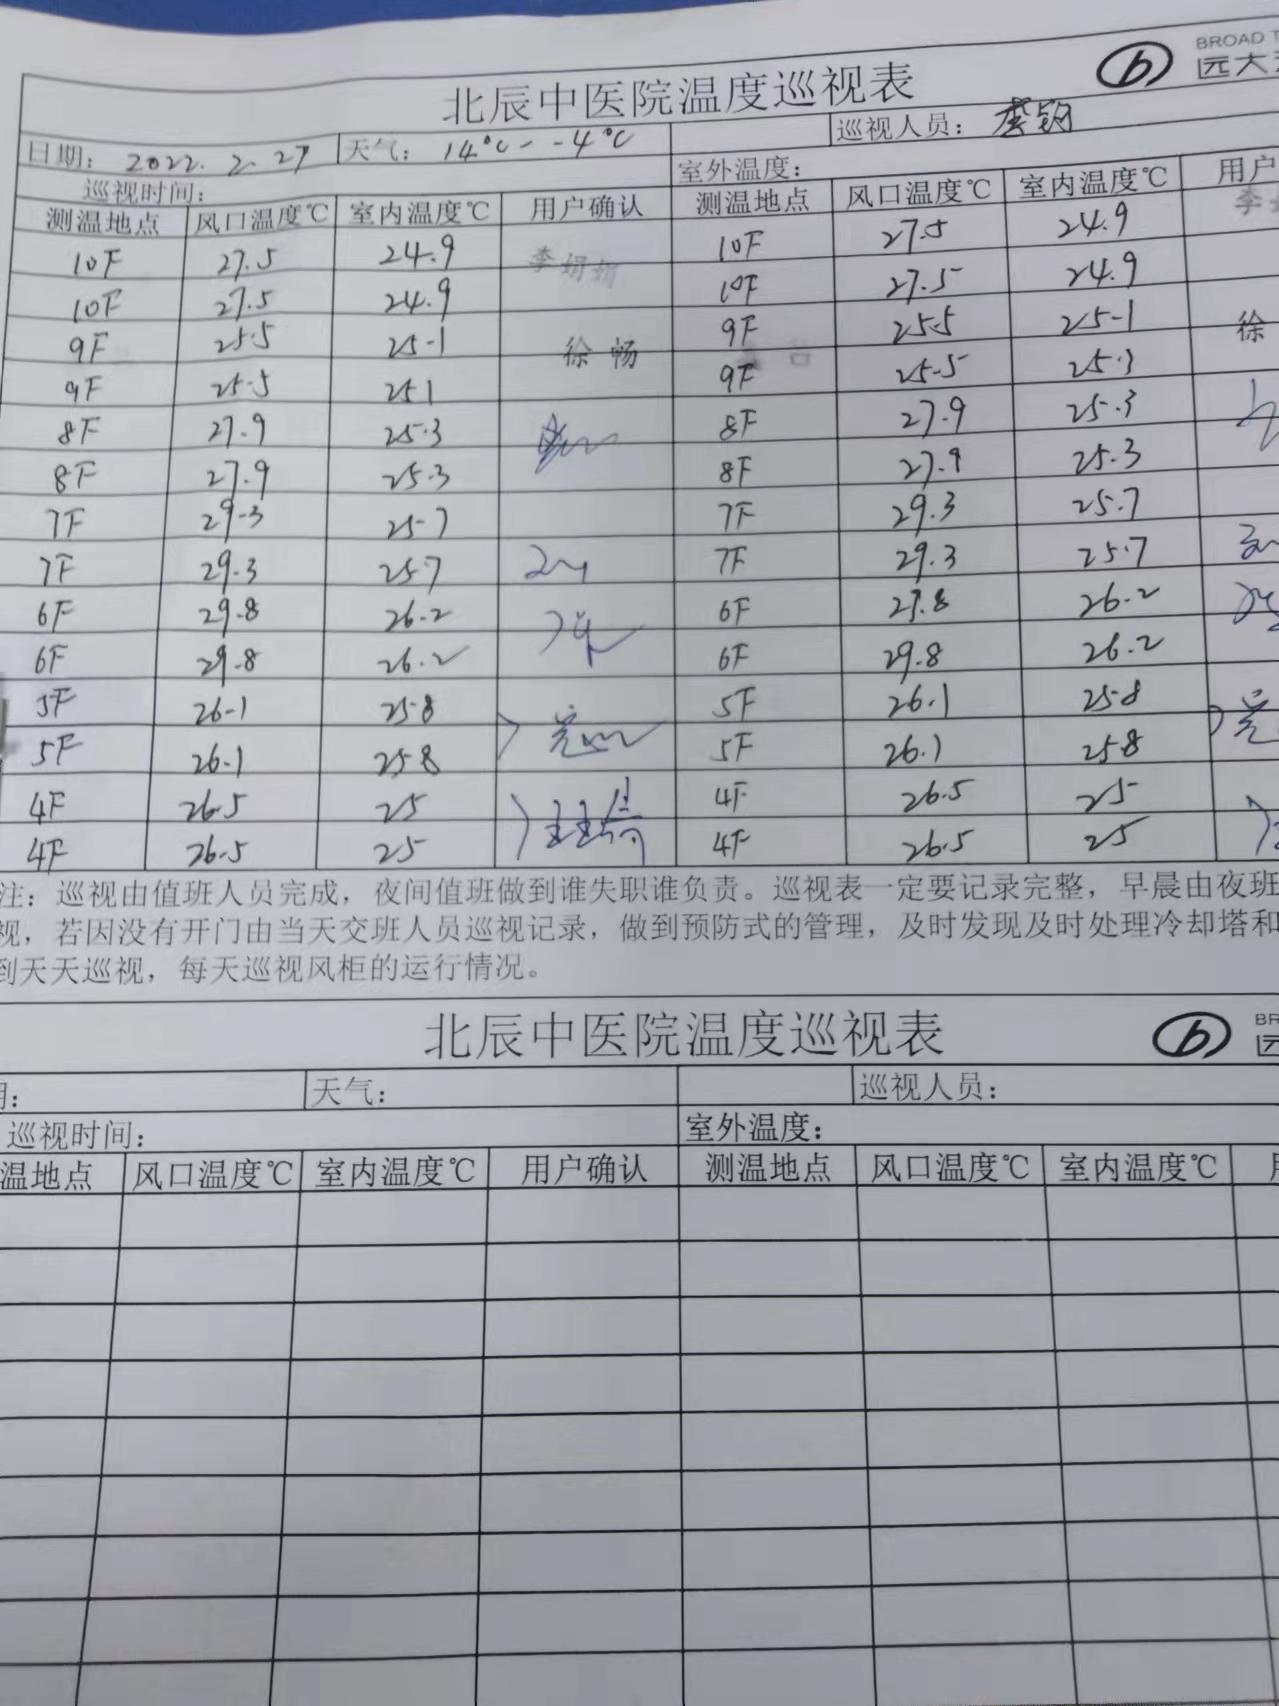 BROAD T
远大
北辰中医院温度巡视表
日期：2022.2.27 天气：14℃--4℃ 巡视人员：
巡视时间： 室外温度：
测温地点 风口温度℃ 室内温度℃ 用户确认 测温地点 风口温度℃ 室内温度℃ 用户
10F 27.5 24.9 李娟娟 10F 27.5 24.9 李
10F 27.5 24.9 10F 27.5 24.9
9F 25.5 25.1 徐畅 9F 25.5 25.1 徐
9F 25.5 251 9F 25.5 25.3
8F 27.9 25.3 8F 27.9 25.3
8F 27.9 25.3 8F 27.9 25.3
7F 29.3 25.7 7F 29.3 25.7
7F 29.3 25.7 7F 29.3 25.7
6F 29.8 26.2 6F 29.8 26.2
6F 29.8 26.2 6F 29.8 26.2
5F 26.1 25.8 5F 26.1 25.8
5F 26.1 25.8 5F 26.1 25.8
4F 26.5 25 4F 26.5 25
4F 26.5 25 4F 26.5 25
注：巡视由值班人员完成，夜间值班做到谁失职谁负责。巡视表一定要记录完整，早晨由夜班
视，若因没有开门由当天交班人员巡视记录，做到预防式的管理，及时发现及时处理冷却塔和
到天天巡视，每天巡视风柜的运行情况。
北辰中医院温度巡视表
BR
期： 天气： 巡视人员：
巡视时间： 室外温度：
温地点 风口温度℃ 室内温度℃ 用户确认 测温地点 风口温度℃ 室内温度℃